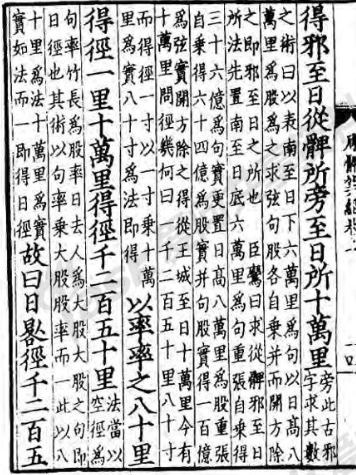 周髀算經卷
得邪至日從髀所旁至日所十萬里
旁此古邪
字求其數
之術曰以表南至日下六萬里為句以日髙八
萬里為股為之求弦句股各自乘并而開方除
之即邪至日之所也 臣鸞曰求從髀邪至日
所法先置南至日底六萬里為句重張自乘得
三十六億為句實更置日髙八萬里為股重張
自乘得六十四億為股實并句股實得一百億
為弦實開方除之得從王城至日十萬里今有
十萬里問徑幾何曰一千二百五十里八十寸
而得徑一寸以一寸乘十萬
里為實八十寸為法即得
以率率之八十里
得徑一里十萬里得徑千二百五十里
法當以
空徑為
句率竹長為股率日去人為大股大股之句即
日徑也其術以句率乘大股股率而一此以八
十里為法十萬里為實
實如法而一即得日徑
故曰日晷徑千二百五